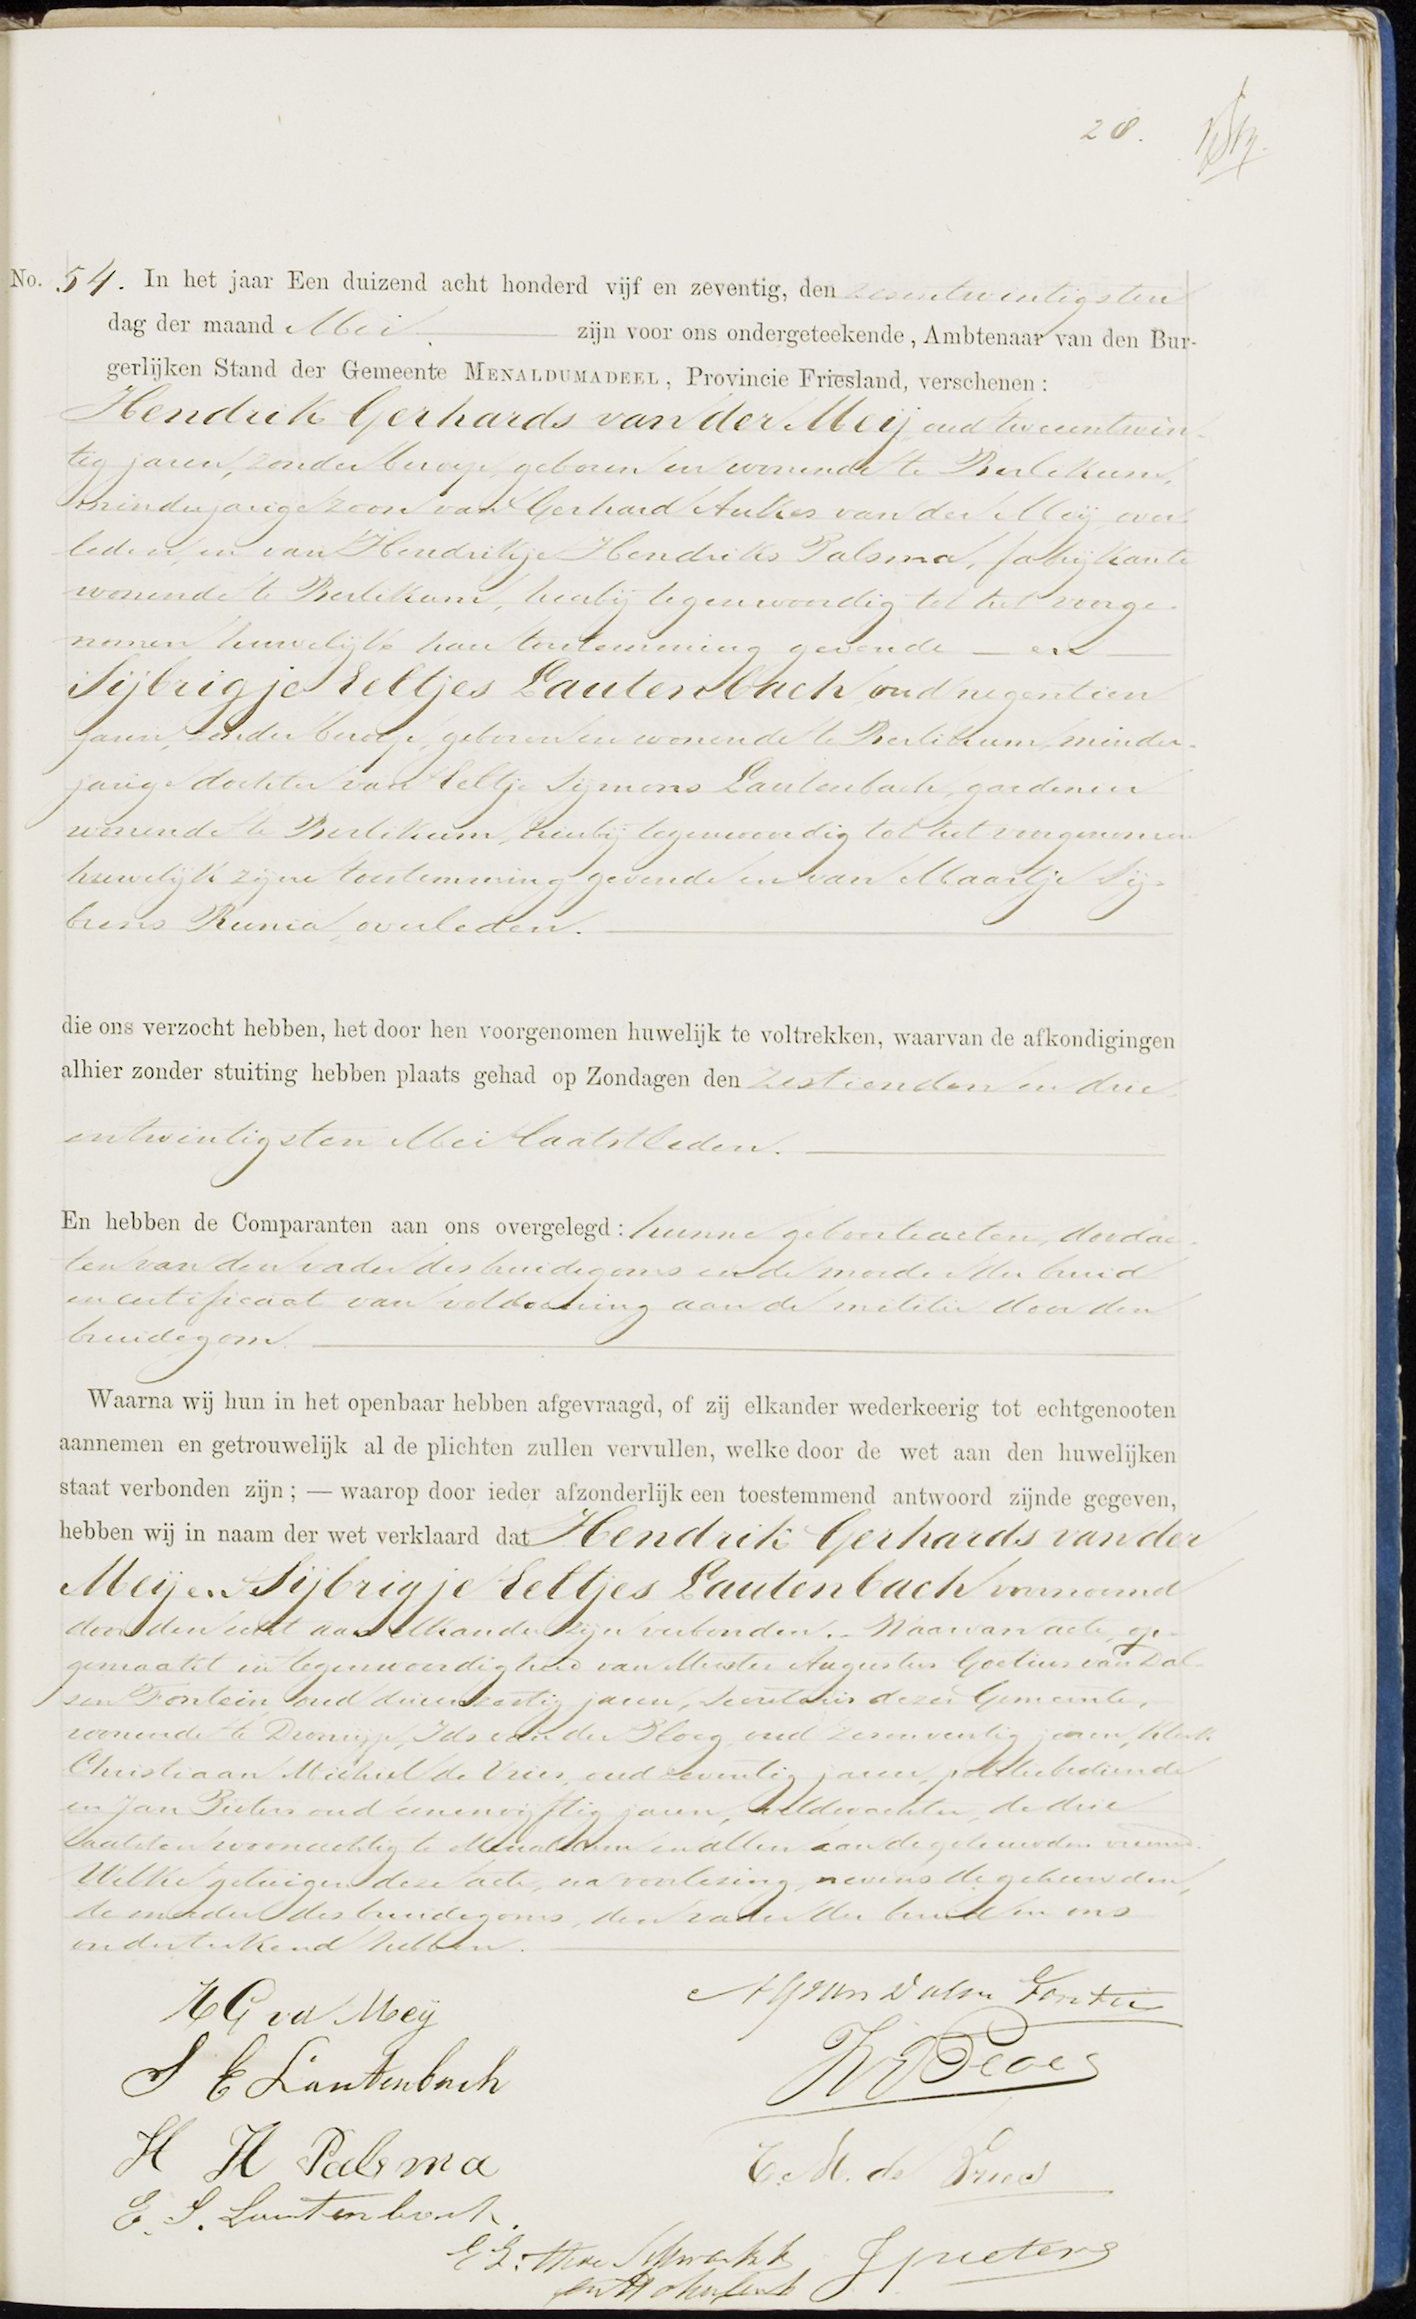 28.
No. 54. In het jaar Een duizend acht honderd vijf en zeventig, den zesentwintigsten
dag der maand Mei zijn voor ons ondergeteekende, Ambtenaar van den Bur-
gerlijken Stand der Gemeente MENALDUMADEEL, Provincie Friesland, verschenen:
Hendrik Gerhards van der Meij, oud tweeentwin-
tig jaren, zonder beroep, geboren en wonende te Berlikum,
minderjarige zoon van Gerhard Aukes van der Meij, over-
leden, en van Hendrikje Hendriks Palsma, fabrijkante
wonende te Berlikum, hierbij tegenwoordig tot het voorge-
nomen huwelijk hare toestemming gevende — en —
Sijbrigje Eeltjes Lautenbach, oud negentien
jaren, zonder beroep, geboren en wonende te Berlikum, minder-
jarige dochter van Eeltje Sijmons Lautenbach, gardenier
wonende te Berlikum, hierbij tegenwoordig tot het voorgenomen
huwelijk zijne toestemming gevende en van Maartje Sij-
brens Runia, overleden.
die ons verzocht hebben, het door hen voorgenomen huwelijk te voltrekken, waarvan de afkondigingen
alhier zonder stuiting hebben plaats gehad op Zondagen den zestienden en drie-
entwintigsten Mei laatstleden.
En hebben de Comparanten aan ons overgelegd: hunne geboorteacten, doodac-
ten van den vader des bruidegoms en de moeder der bruid
en certificaat van voldoening aan de militie door den
bruidegom.
Waarna wij hun in het openbaar hebben afgevraagd, of zij elkander wederkeerig tot echtgenooten
aannemen en getrouwelijk al de plichten zullen vervullen, welke door de wet aan den huwelijken
staat verbonden zijn; — waarop door ieder afzonderlijk een toestemmend antwoord zijnde gegeven,
hebben wij in naam der wet verklaard dat Hendrik Gerhards van der
Meij en Sijbrigje Eeltjes Lautenbach voornoemd
door den echt aan elkander zijn verbonden. — Waarvan acte, op-
gemaakt in tegenwoordigheid van Meester Augustus Goetius van Dal-
sen Fontein, oud drieenzestig jaren, Secretaris dezer Gemeente,
wonende te Dronrijp, Ids van der Ploeg, oud zesenveertig jaren, klerk
Christiaan Michiel de Vries, oud zeventig jaren, politiebediende
en Jan Pieters oud eenenvijftig jaren, veldwachter, de drie
laatsten woonachtig te Menaldum en allen aan de gehuwden vreemd.
Welke getuigen deze acte, na voorlezing, nevens de gehuwden,
de moeder des bruidegoms, den vader der bruid en ons
onderteekend hebben.
HG vd Meij
A G van Dalsen Fontein
S E Lautenbach
H H Palsma
C. M. de Vries
E. S. Lautenbach.
J Pieters